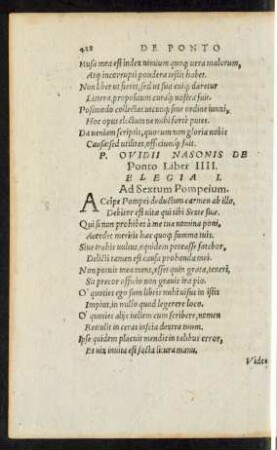 428 DE PONTO
Musa mea est index nimium quoq; uera malorum,
Atq; incorrupti pondera testis habet.
Non liber ut fieret, sed ut sua cuiq; daretur
Litera, propositum curaq; nostra fuit.
Postmodo collectas utcunq; sine ordine iunxi,
Hoc opus electum ne mihi forte putes.
Da ueniam scriptis, quorum non gloria nobis
Causa: sed utilitas, officiumq́; fuit.
P. OVIDII NASONIS DE
Ponto Liber IIII.
ELEGIA I.
Ad Sextum Pompeium.
ACcipe Pompei deductum carmen ab illo,
Debitor est uitæ qui tibi Sexte suæ.
Qui si non prohibes à me tua nomina poni,
Accedet meritis hæc quoq; summa tuis.
Siue trahis uultus, equidem peccasse fatebor,
Delicti tamen est causa probanda mei.
Non potuit mea mens, esset quin grata, teneri,
Sit precor officio non grauis ira pio.
O' quoties ego sum libris mihi uisus in istis
Impius, in nullo quod legerere loco.
O' quoties alijs uellem cum scribere, nomen
Retulit in ceras inscia dextra tuum.
Ipse quidem placuit mendis in talibus error,
Et uix inuita est facta litura manu.
Vide